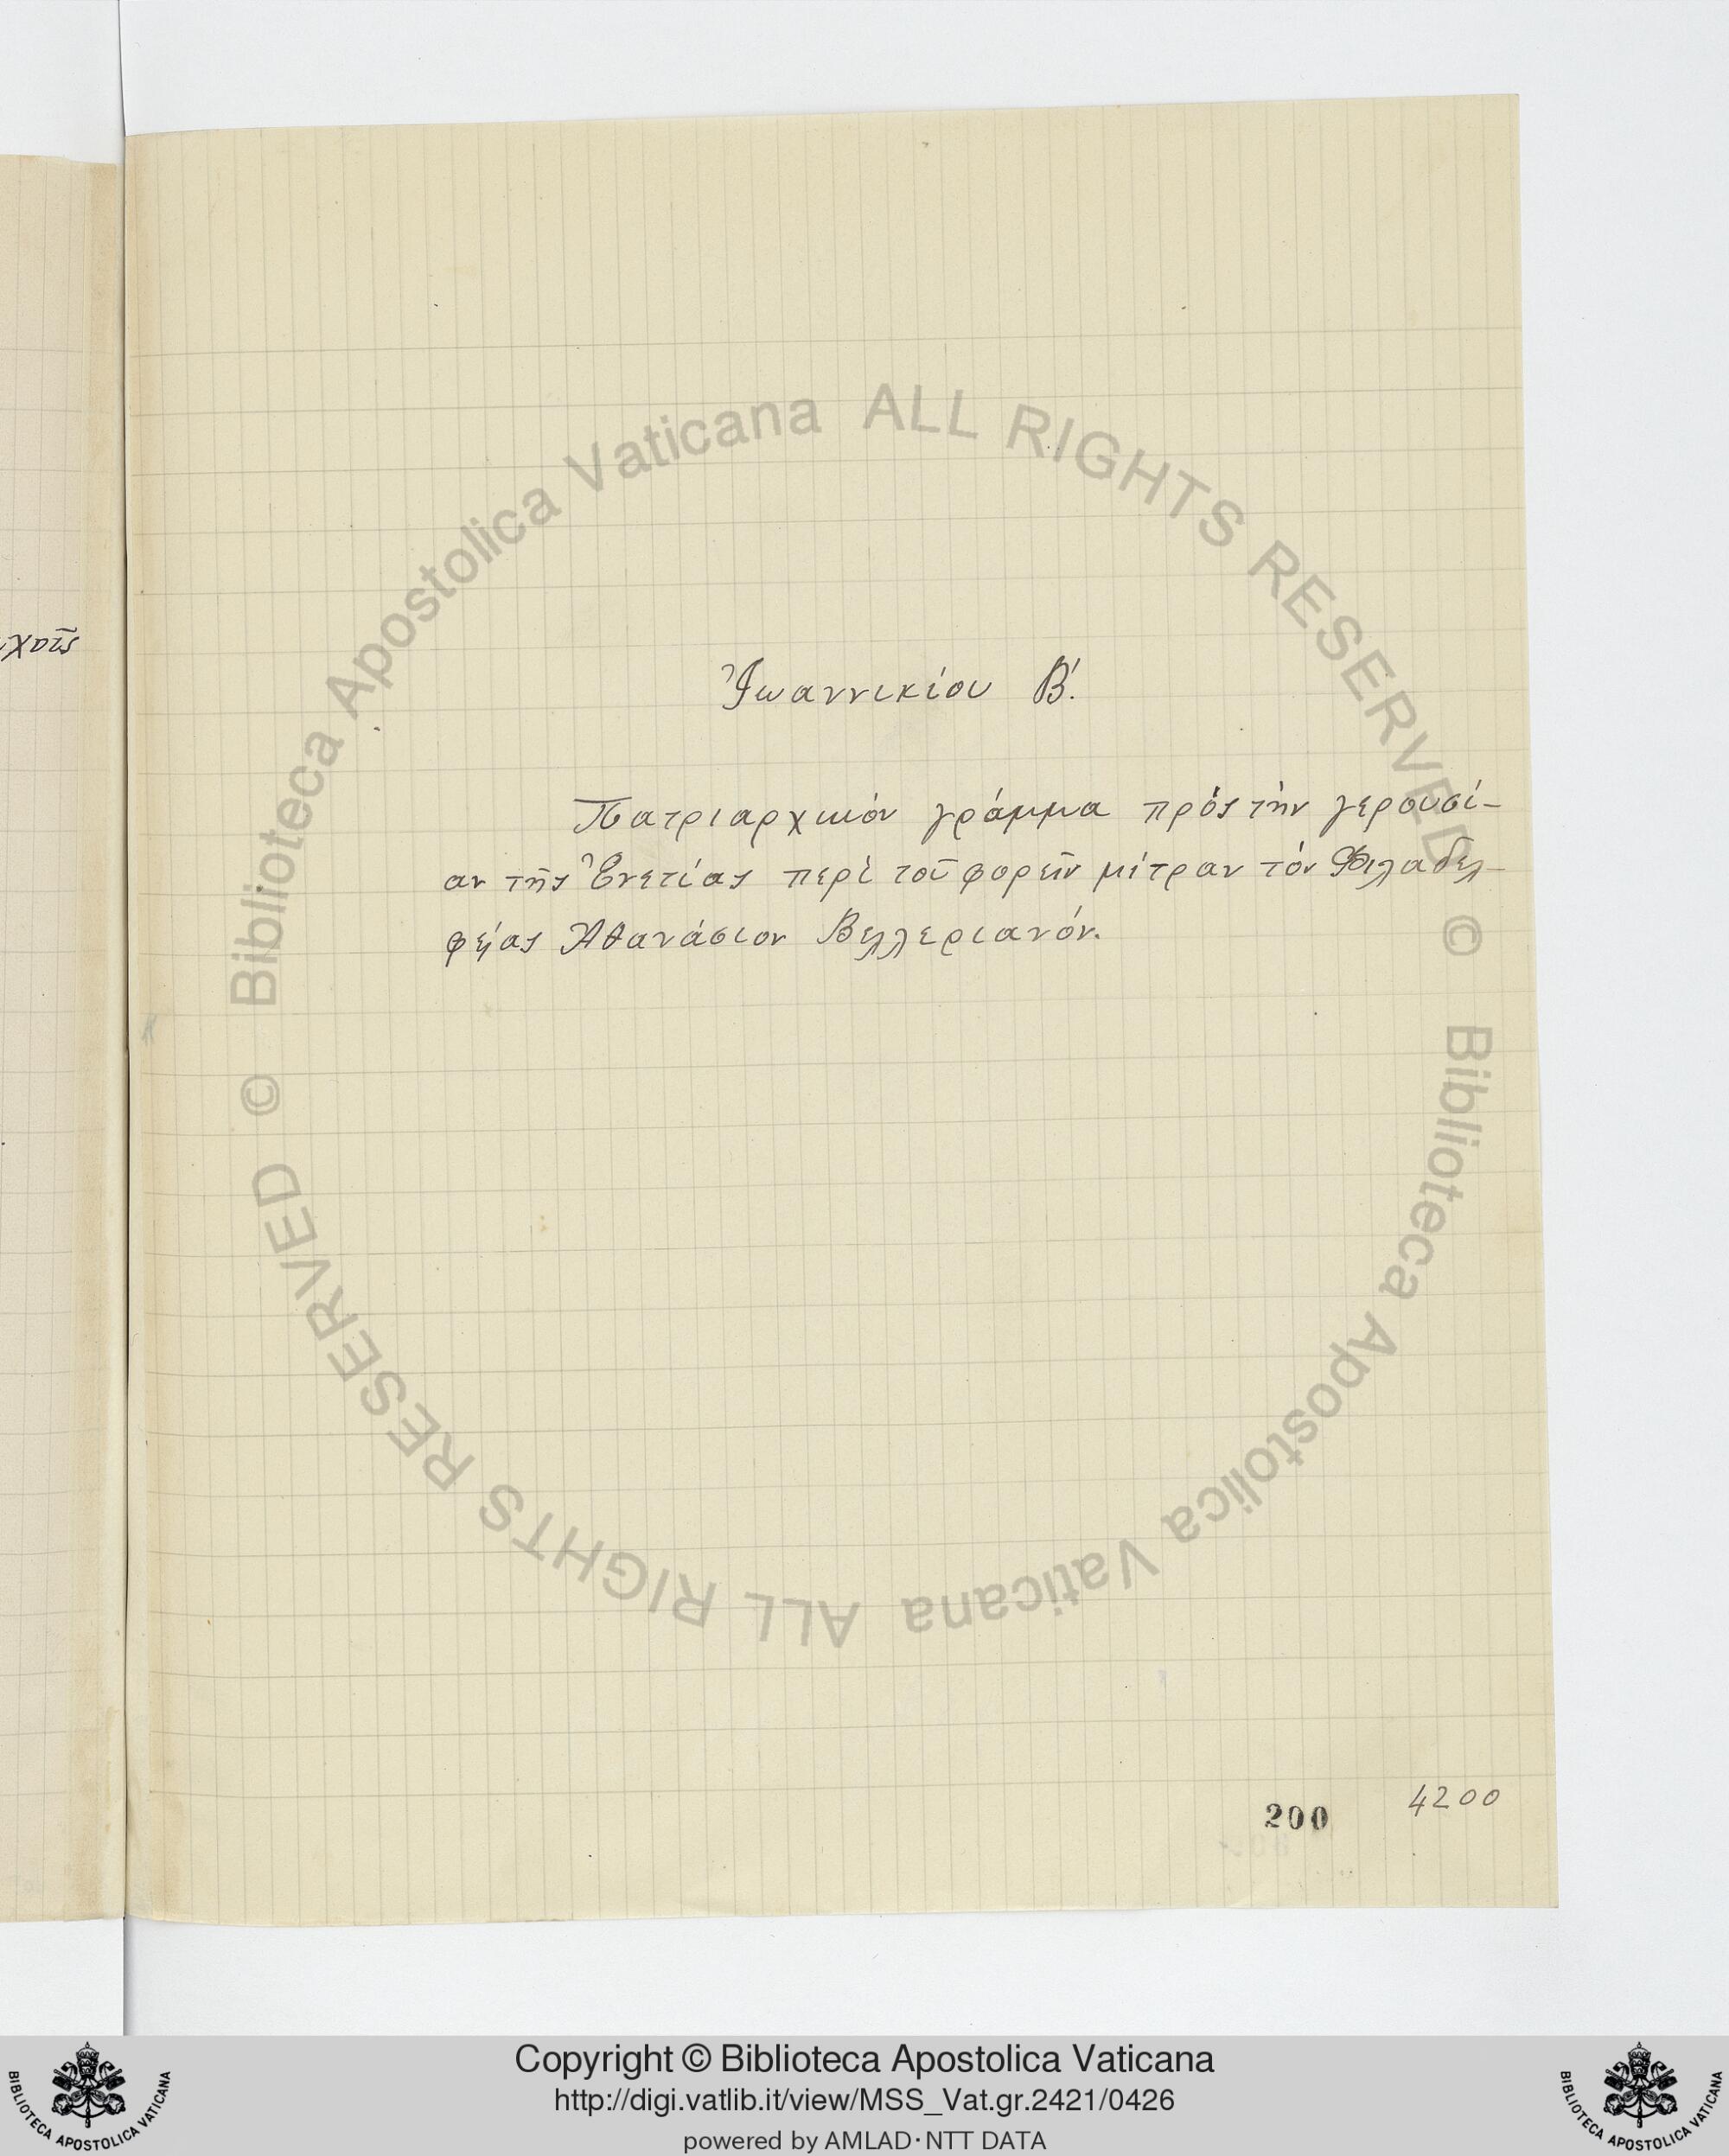 Ἰωαννικίου Β΄.
Πατριαρχικόν γράμμα πρός τήν γερουσί-
αν τῆς Ἐνετίας περί τοῦ φορεῖν μίτραν τόν Φιλαδελ-
φείας Ἀθανάσιον Βελλεριανόν.
200 4200
© Biblioteca Apostolica Vaticana ALL RIGHTS RESERVED
© Biblioteca Apostolica Vaticana ALL RIGHTS RESERVED
Copyright © Biblioteca Apostolica Vaticana
http://digi.vatlib.it/view/MSS_Vat.gr.2421/0426
powered by AMLAD·NTT DATA
BIBLIOTECA APOSTOLICA VATICANA
BIBLIOTECA APOSTOLICA VATICANA